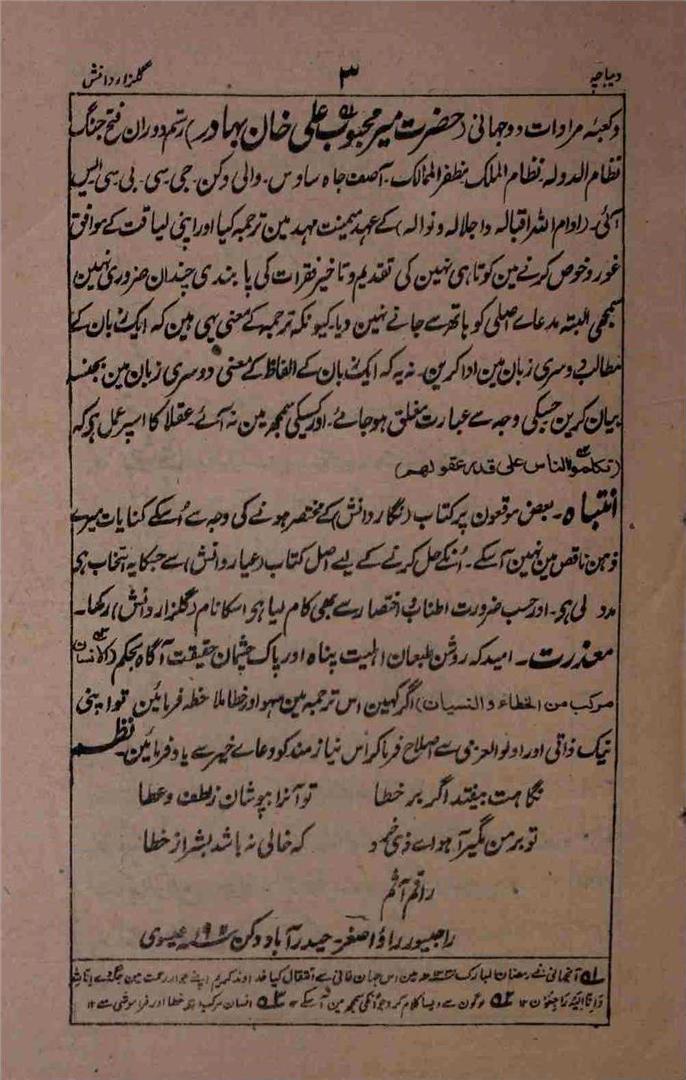 دیباچہ ۳ گلزار دانش
وکعبۂ مرادات دوجہانی (حضرت میر محبوب علی خان بہادر) رستم دوران فتح جنگ
نظام الدولہ۔ نظام الملک۔ مظفر الممالک۔ آصف جاہ سادس۔ والی دکن۔ جی۔ سی۔ بی۔ سی۔ ایس
آئی۔ (ادام اللہ اقبالہ واجلالہ ونوالہ) کے عہد میمنت مہد مین ترجمہ کیا اور اپنی لیاقت کے موافق
غور وخوض کرنے مین کوتاہی نہین کی تقدیم وتاخیر فقرات کی پابندی چندان ضروری نہین
سمجھی البتہ مدعاے اصلی کو ہاتھ سے جانے نہین دیا۔ کیونکہ ترجمہ کے معنی یہی ہین کہ ایک زبان کے
مطالب دوسری زبان مین ادا کرین۔ نہ یہ کہ ایک زبان کے الفاظ کے معنی دوسری زبان مین بجنسہ
بیان کرین جسکی وجہ سے عبارت مغلق ہوجائے۔ اور کسیکی سمجھ مین نہ آئے۔ عقلا کا اسپر عمل ہے کہ
(تکلموا الناس علی قدر عقولھم)
انتباہ۔ بعض موقعون پر کتاب (نگار دانش) کے مختصر ہونے کی وجہ سے اُسکے کنایات میرے
ذہن ناقص مین نہین آسکے۔ اُنکے حل کرنے کے لیے اصل کتاب (عیار دانش) سے جسکا یہ انتخاب ہی
مدد لی ہو۔ اور حسب ضرورت اطناب واختصار سے بھی کام لیا ہو اسکا نام (گلزار دانش) رکھا۔
معذرت۔ امید کہ روشن طبعان اہلیت پناہ اور پاک چشمان حقیقت آگاہ بحکم (الانسان
مرکب من الخطاء والنسیان) اگر کہین اس ترجمہ مین سہو اور خطا ملاحظہ فرمائین تو اپنی
نیک ذاتی اور اولوالعزمی سے اصلاح فرماکر اس نیازمند کو دعاے خیر سے یاد فرمائین۔ نظم
نگاہت بیفتد اگر بر خطا تو آنرا بپوشان زلطف وعطا
تو بر من مگیر آہو اے ذی خرد کہ خالی نہ باشد بشر از خطا
راقم آثم
راجیسور راؤ اصغر۔ حیدرآباد دکن سنہ ۱۹۰ عیسوی
لہ آنجہانی نے رمضان المبارک مین اس جہان فانی سے انتقال کیا خداوند کریم اپنے جوار رحمت مین جگہ دے اِنَّا لِلّٰہِ
وَاِنَّا اِلَیْہِ رَاجِعُوْن ۱۲ ۲ہ لوگون سے ویسا کلام کرو جو انکی سمجھ مین آسکے ۱۲ ۳ہ انسان مرکب ہے خطا اور فراموشی سے ۱۲